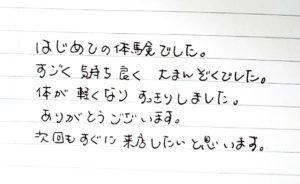 はじめての体験でした。
すごく気持ち良く 大まんぞくでした。
体が軽くなり すっきりしました。
ありがとうございます。
次回もすぐに来店したいと思います。